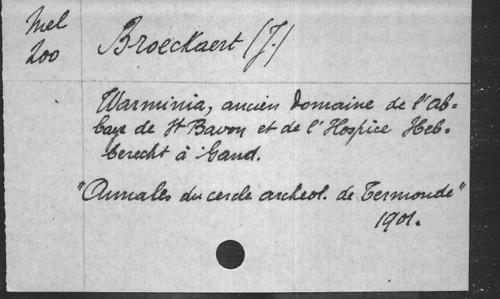 Mel
200
Broeckaert (J.)
Warminia, ancien Domaine de l'Ab-
baye de St Bavon et de l'Hospice Heb-
berecht à Gand.
"Annales du cercle archéol. de Termonde"
1901.